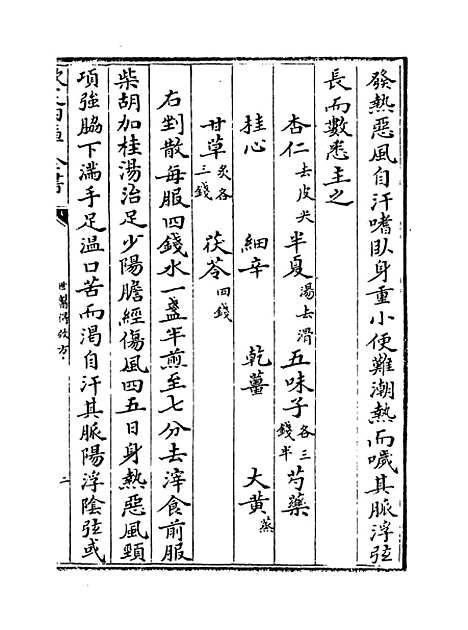 發熱惡風自汗嗜臥身重小便難潮熱而噦其脈浮弦
長而數悉主之
杏仁去皮尖 半夏湯去滑 五味子各三錢半 芍藥
桂心 細辛 乾薑 大黃蒸
甘草炙各三錢 茯苓四錢
右剉散每服四錢水一盞半煎至七分去滓食前服
柴胡加桂湯治足少陽膽經傷風四五日身熱惡風頸
項強脇下滿手足温口苦而渴自汗其脈陽浮陰弦或
欽定四庫全書
世醫得效方
二